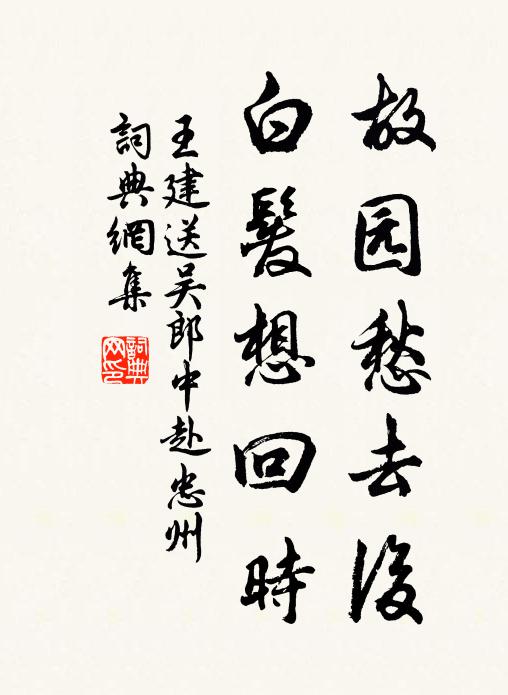 故园愁去後
白髮想回時
王建送吴郎中赴忠州
詞典網集
詞典網印